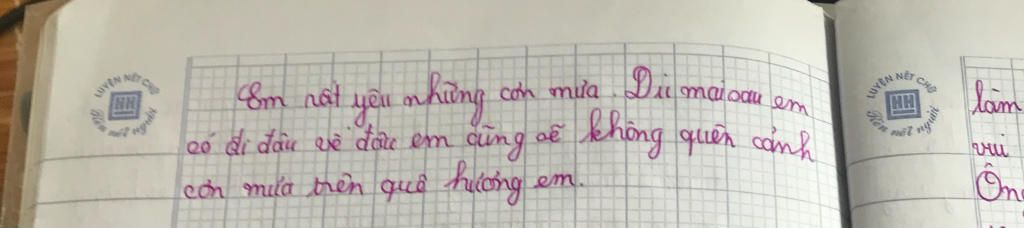 LUYỆN NÉT CHỮ
Rèn nết người
Em rất yêu những cơn mưa. Dù mai sau em
có đi đâu về đâu em cũng sẽ không quên cảnh
cơn mưa trên quê hương em.
LUYỆN NÉT CHỮ
Rèn nết người
làm
vui
Ông